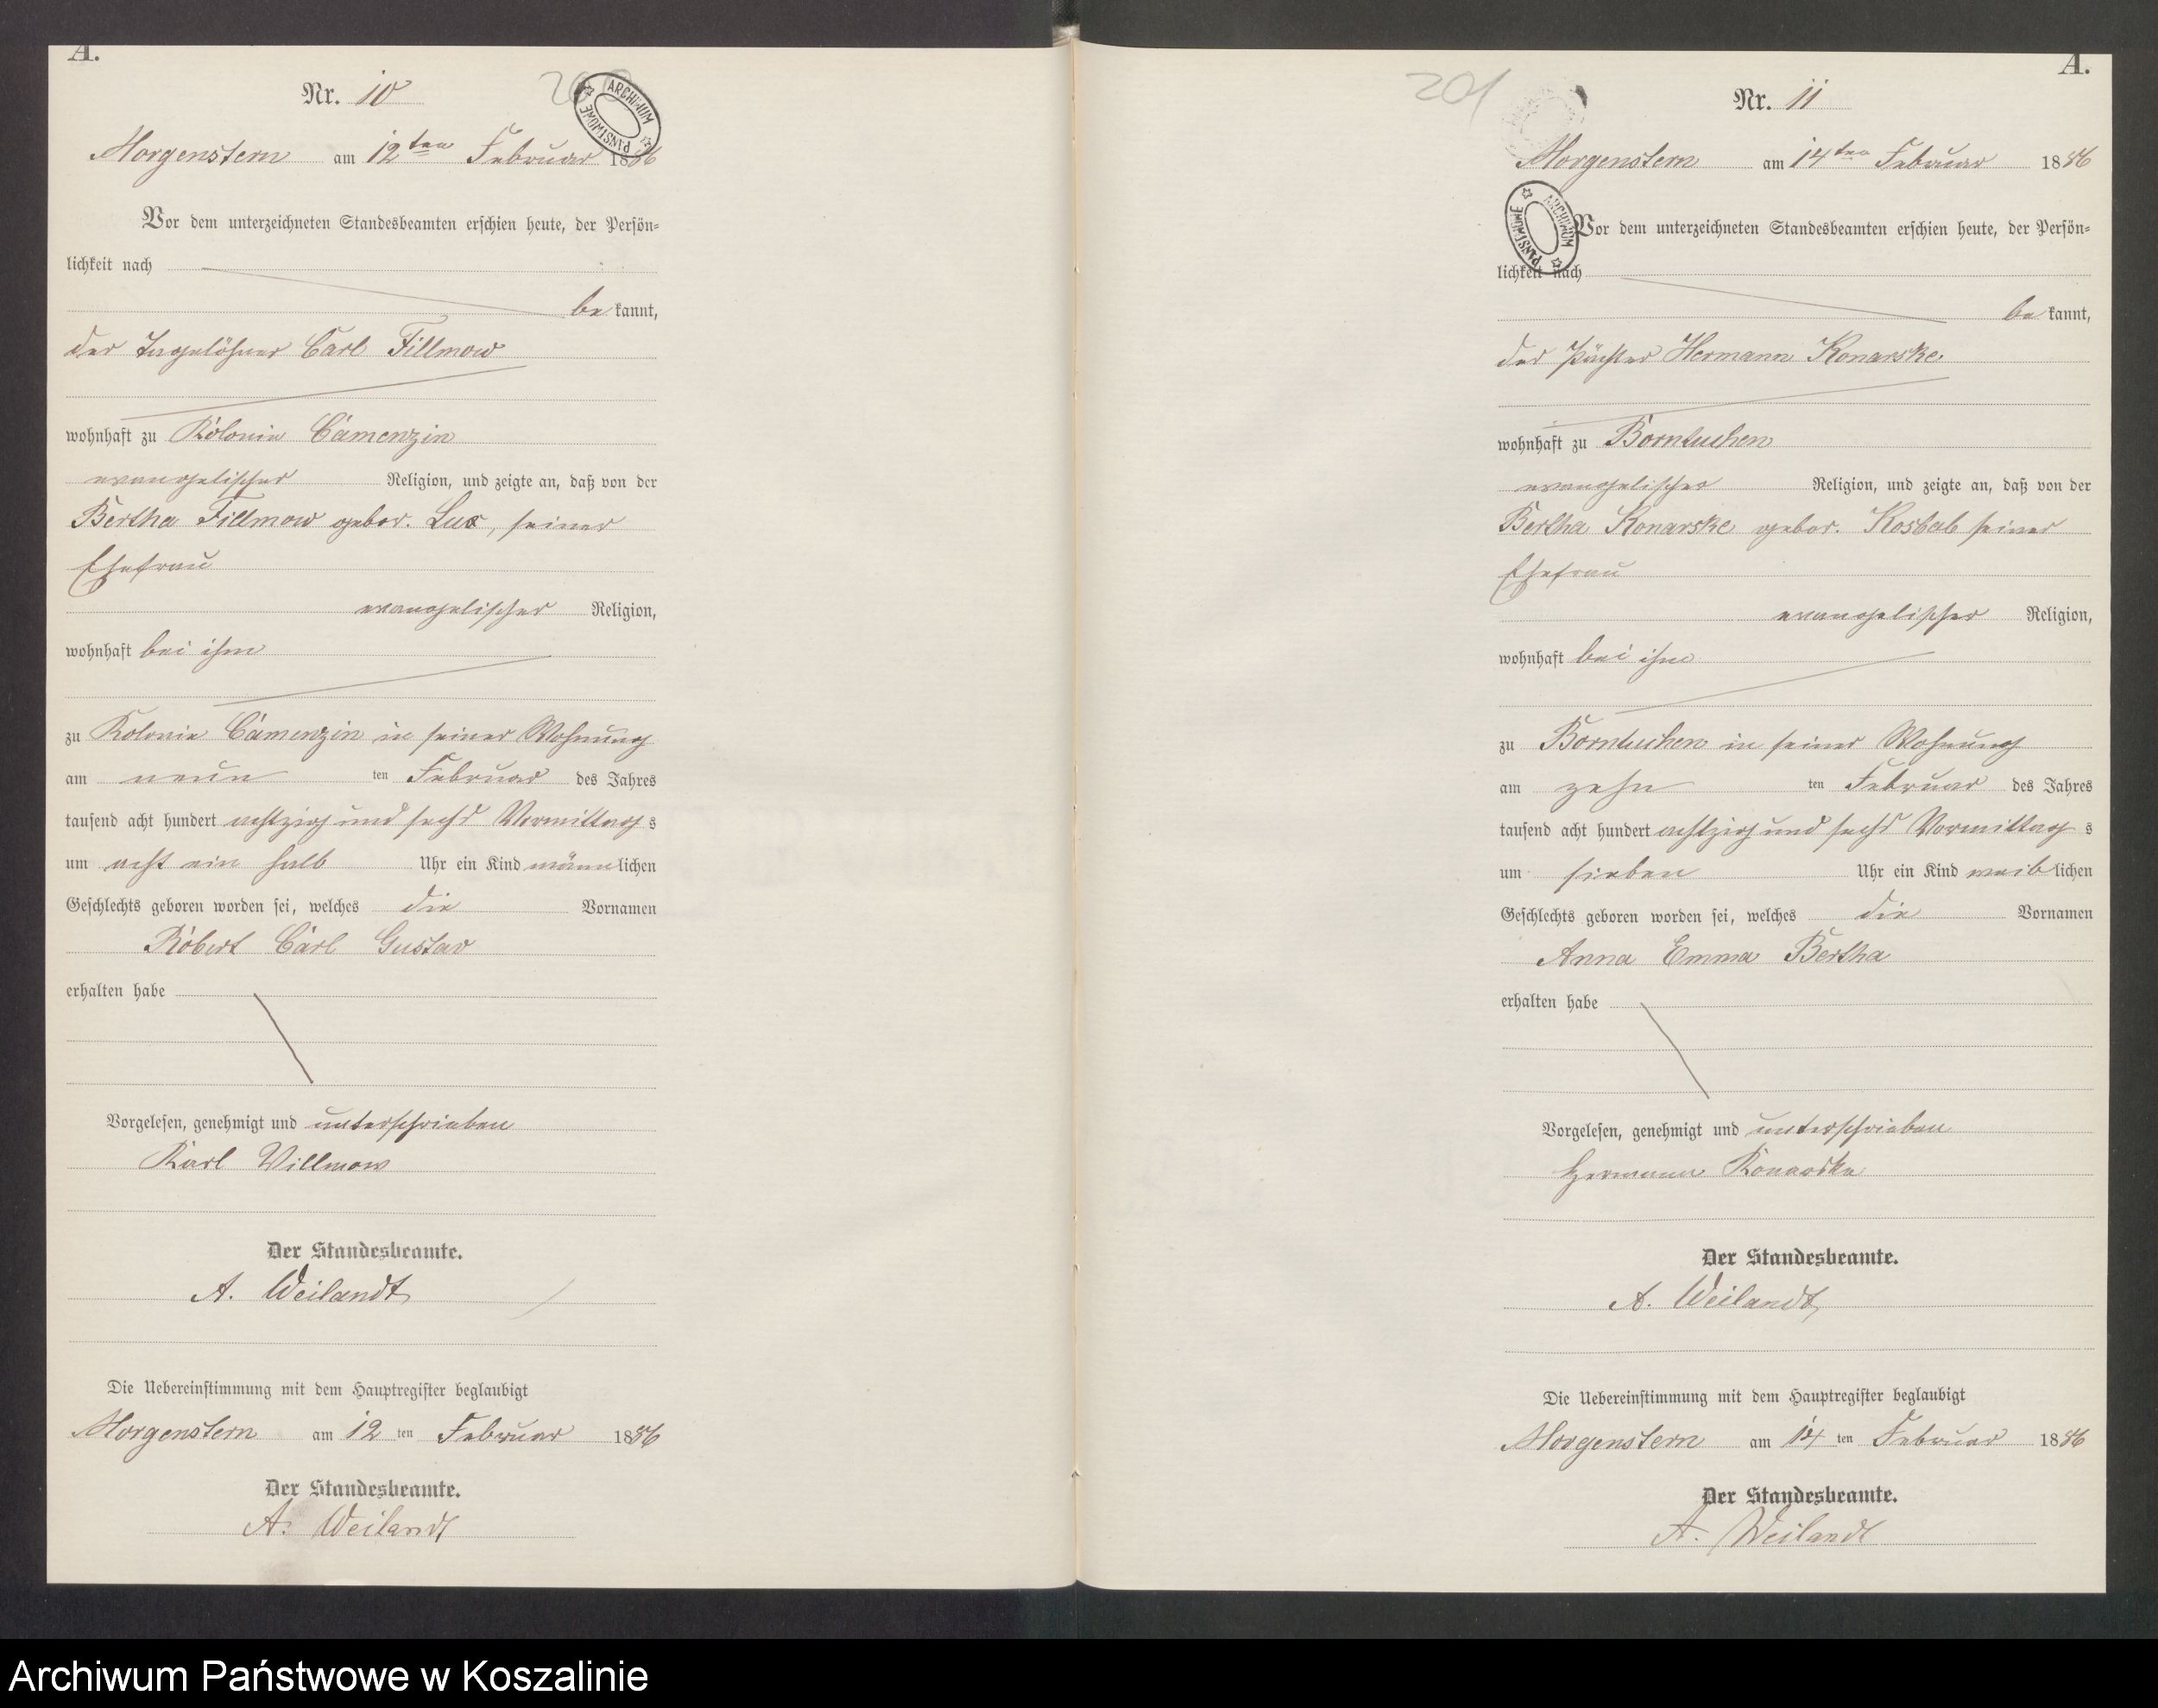 A.
Nr. 10
200
ARCHIWUM PAŃSTWOWE
Morgenstern am 12ten Februar 1886
Vor dem unterzeichneten Standesbeamten erschien heute, der Persön=
lichkeit nach
be kannt,
der Tagelöhner Carl Fillmow
wohnhaft zu Kolonie Camenzin
evangelischer Religion, und zeigte an, daß von der
Bertha Fillmow gebor. Lux, seiner
Ehefrau
evangelischer Religion,
wohnhaft bei ihm
zu Kolonie Camenzin in seiner Wohnung
am neun ten Februar des Jahres
tausend acht hundert achtzig und sechs Vormittag s
um acht ein halb Uhr ein Kind männlichen
Geschlechts geboren worden sei, welches die Vornamen
Robert Carl Gustav
erhalten habe
Vorgelesen, genehmigt und unterschrieben
Karl Villmow
Der Standesbeamte.
A. Weilandt
Die Uebereinstimmung mit dem Hauptregister beglaubigt
Morgenstern am 12 ten Februar 1886
Der Standesbeamte.
A. Weilandt
A.
201
Nr. 11
Morgenstern am 14ten Februar 1886
ARCHIWUM PAŃSTWOWE
Vor dem unterzeichneten Standesbeamten erschien heute, der Persön=
lichkeit nach
be kannt,
der Pächter Hermann Konarske
wohnhaft zu Borntuchen
evangelischer Religion, und zeigte an, daß von der
Bertha Konarske gebor. Kosbab seiner
Ehefrau
evangelischer Religion,
wohnhaft bei ihm
zu Borntuchen in seiner Wohnung
am zehn ten Februar des Jahres
tausend acht hundert achtzig und sechs Vormittag s
um sieben Uhr ein Kind weiblichen
Geschlechts geboren worden sei, welches die Vornamen
Anna Emma Bertha
erhalten habe
Vorgelesen, genehmigt und unterschrieben
Hermann Konarske
Der Standesbeamte.
A. Weilandt
Die Uebereinstimmung mit dem Hauptregister beglaubigt
Morgenstern am 14 ten Februar 1886
Der Standesbeamte.
A. Weilandt
Archiwum Państwowe w Koszalinie